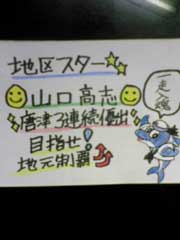 地区スター
山口高志
唐津3連続優出
目指せ!
地元制覇
一走入魂